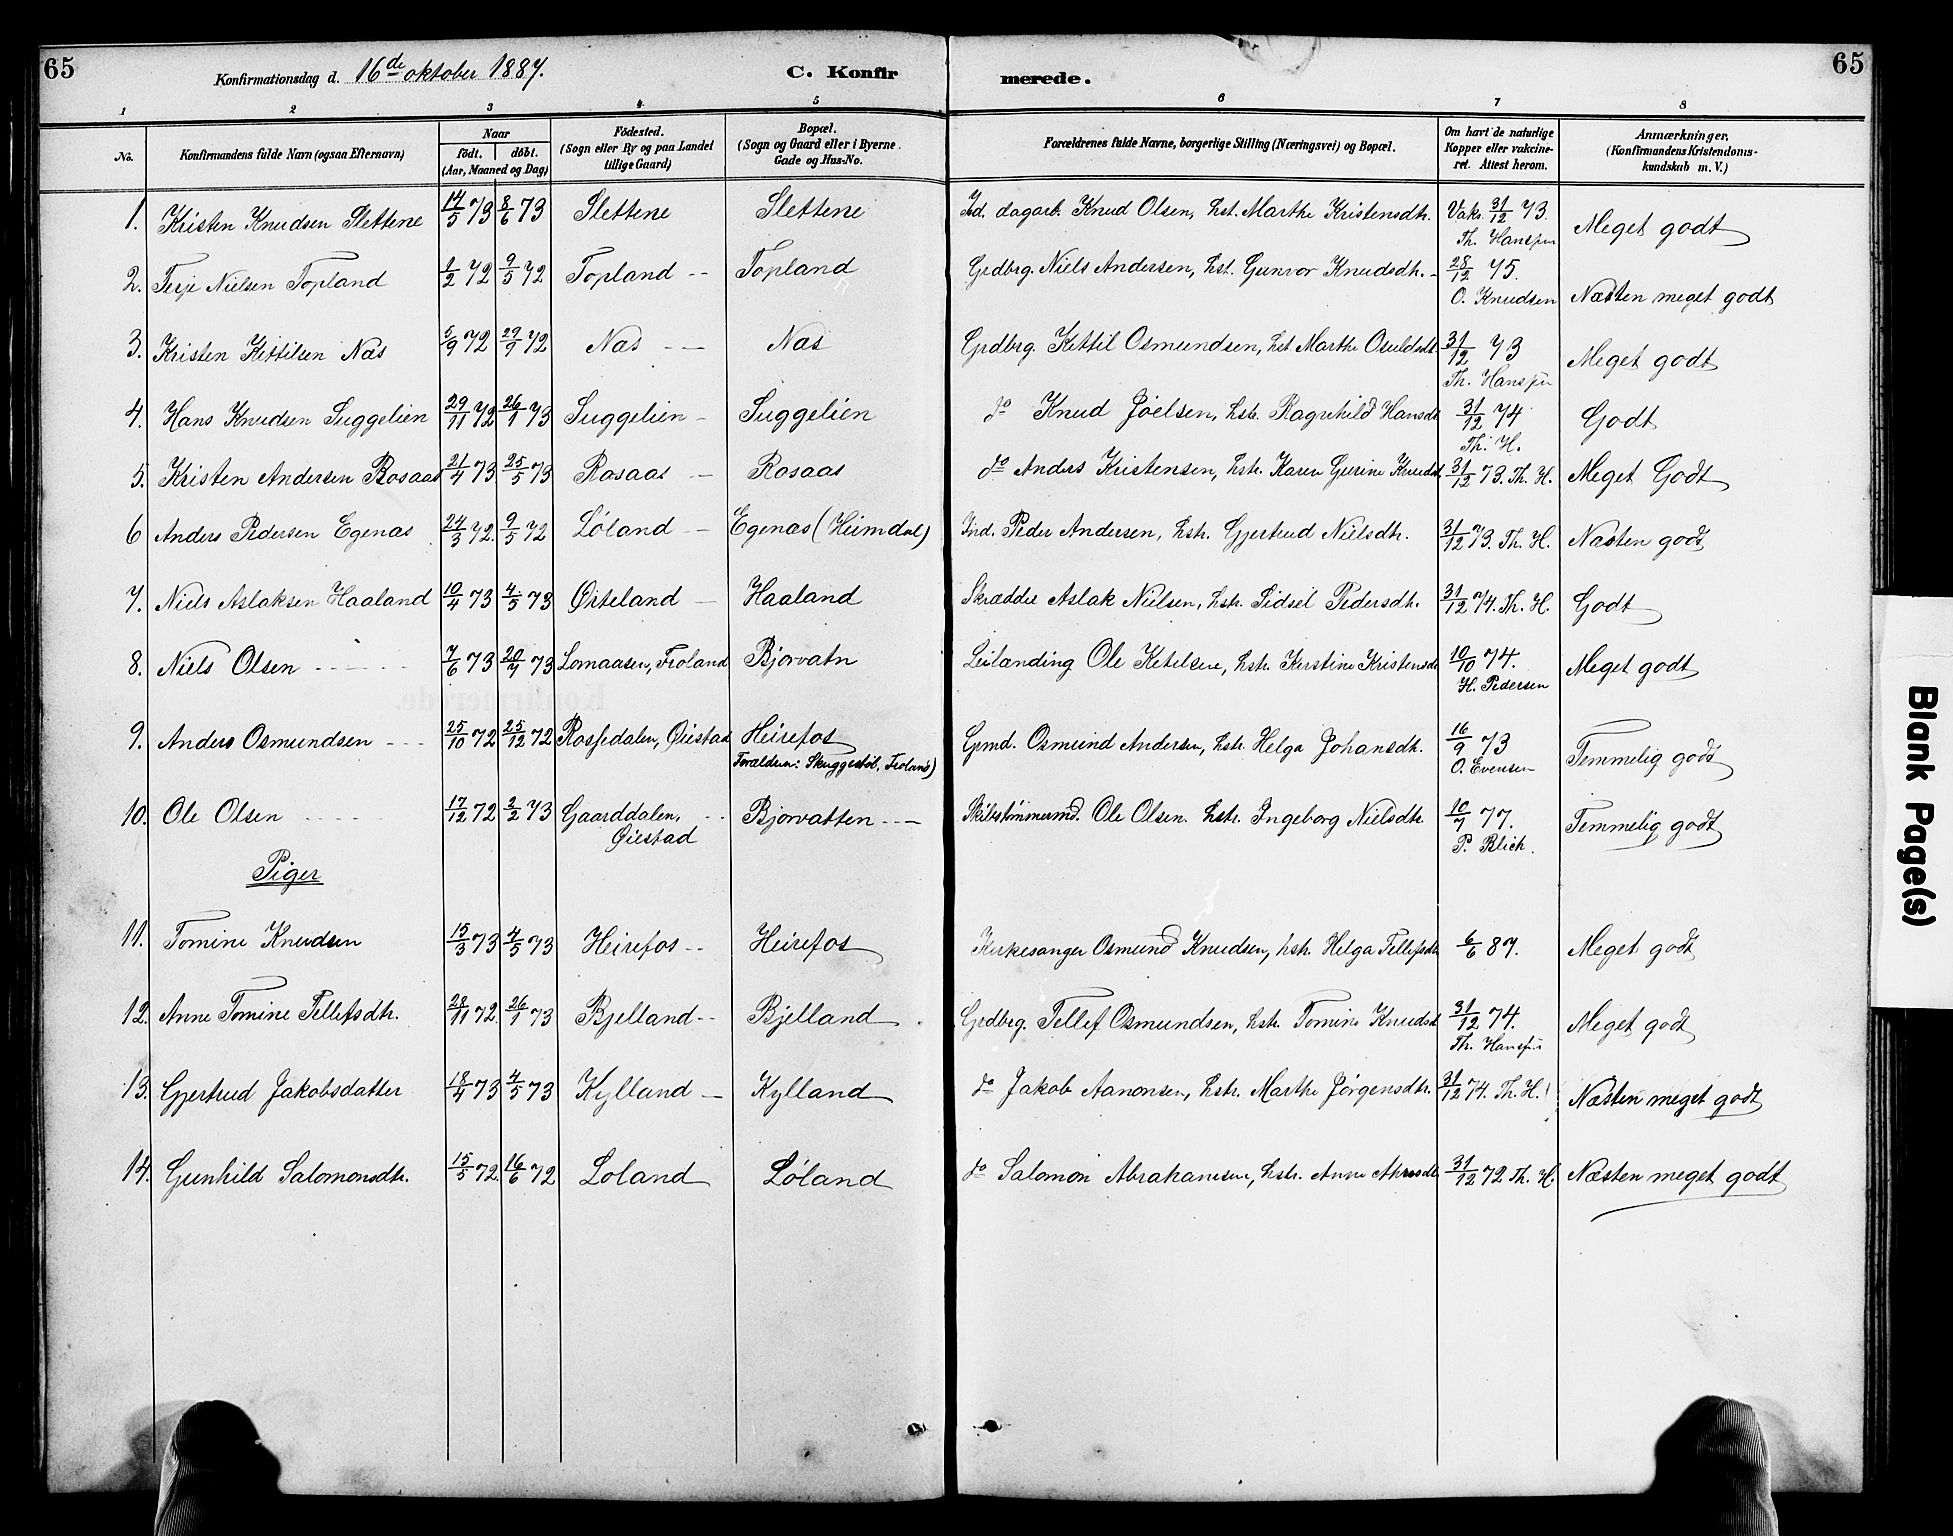 65
Konfirmationsdag d. 16de oktober 1887.
C. Konfir
merede.
65
1 2 3 4 5 6 7 8
No.
Konfirmandens fulde Navn (ogsaa Efternavn)
Naar
født. døbt.
(Aar, Maaned og Dag)
Fødested.
(Sogn eller By og paa Landet
tillige Gaard)
Bopæl.
(Sogn og Gaard eller i Byerne
Gade og Hus-No.
Forældrenes fulde Navne, borgerlige Stilling (Næringsvei) og Bopæl.
Om havt de naturlige
Kopper eller vakcine-
ret. Attest herom.
Anmærkninger.
(Konfirmandens Kristendoms-
kundskab m. V.)
1. Kristen Knudsen Slettene 14/5 73 8/6 73 Slettene Slettene Ind. dagarb. Knud Olsen, hst. Marthe Kristensdtr. Vaks. 31/12 73. Meget godt
Th. Hansen
2. Terje Nielsen Topland 1/2 72 9/5 72 Topland -- Topland Grdbrg. Niels Andersen, hst. Gunvor Knudsdtr. - 28/12 75. Næsten meget godt
O. Knudsen
3. Kristen Kittilsen Næs 5/9 72 29/9 72 Næs -- Næs Grdbrg. Kittil Osmundsen, hst Marthe Osuldsdt. 31/12 73 Meget godt
Th. Hansen
4. Hans Knudsen Suggelien 29/11 72 26/1 73 Suggelien - Suggelien do Knud Jóelsen, hstr. Ragnhild Hansdt 31/12 74 Godt
Th. H.
5. Kristen Andersen Rosaas 21/4 73 25/5 73 Rosaas - Rosaas do Anders Kristensen, hstr. Karen Gurine Knudsdt. 31/12 73. Th. H. Meget Godt
6 Anders Pedersen Egenæs 24/3 72. 9/5 72 Løland - Egenæs (Heimdal) Ind. Peder Andersen, hstr. Gjertrud Nielsdtr. 31/12 73. Th. H. Næsten godt
7. Niels Aslaksen Haaland 10/4 73 4/5 73 Østeland - Haaland Skrædder Aslak Nielsen, hstr. Sidsel Pedersdtr. 31/12 74. Th. H. Godt
8. Niels Olsen 7/6 73 20/7 73 Lomaasen, Froland Bjorvatn Leilænding Ole Ketelsen, hstr. Kirstine Kristensdt 10/10 74. Meget godt
H. Pedersen
9. Anders Osmundsen 25/10 72 25/12 72 Rossedalen, Øiestad Heirefos Grmd. Osmund Andersen, hstr. Helga Johansdtr. 16/9 73 Temmelig godt
Forældren: Skuggestøl, Froland) O. Evensen
10. Ole Olsen 17/12 72 2/2 73 Gaarddalen, Bjorvatten -- Skibstømmermd. Ole Olsen. hstr. Ingeborg Nielsdtr. 10/7 77. Temmelig godt
Øiestad P. Blich.
Piger
11. Tomine Knudsen 15/3 73 4/5 73 Heirefos -- Heirefos Kirkesanger Osmund Knudsen, hstr. Helga Tellefsdtr 6/6 87. Meget godt
12. Anne Tomine Tellefsdtr. 28/11 72. 26/1 73 Bjelland -- Bjelland Grdbrg. Tellef Osmundsen, hstr. Tomine Knudsdt 31/12 74. Meget godt
Th. Hansen
13. Gjertrud Jakobsdatter 18/4 73 4/5 73 Kylland - Kylland do Jakob Aanonsen, hstr. Marthe Jörgensdtr. 31/12 74. Th. H. Næsten meget godt
14. Gunhild Salomonsdtr. 15/5 72. 16/6 72 Loland Løland do Salomon Abrahamsen, hstr. Anne 31/12 72 Th. H. Næsten meget godt
Blank Page(s)